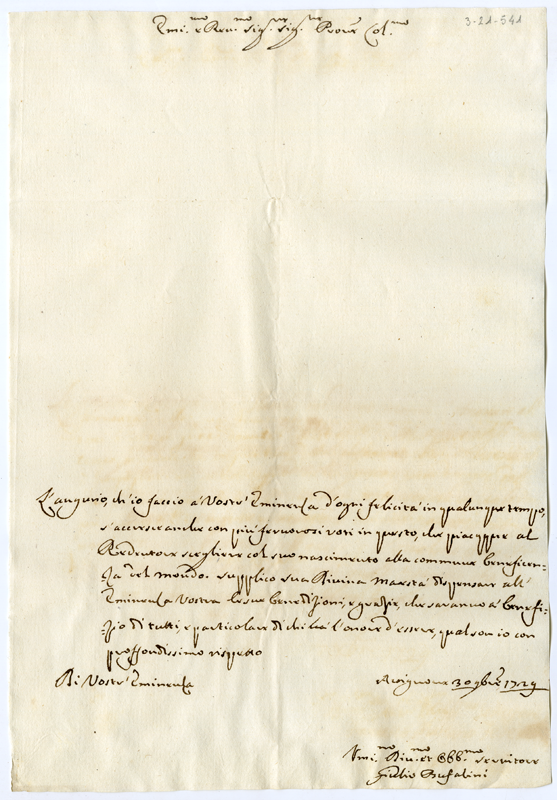 3-21-541
Emi.mo e Rev.mo Sig.r Sig.r Prone Col.mo
L'augurio, ch'io faccio à Vostr' Eminenza d'ogni felicità in qualunque tempo,
s'accresce anche con più fervorosi voti in questo, che piacque al
Redentore scegliere col suo nascimento alla commune beneficen-
za del mondo. supplico sua Divina Maestà dispensare all'
Eminenza Vostra le sue benedizioni, e grazie, che saranno à benefi-
zio di tutti, e particolare di chi hà l'onore d'essere, qual son io con
proffondissimo rispetto
Di Vostr' Eminenza
Avignone 30 9bre 1729
Umi.mo Div.mo et Obb.mo servitore
Giulio Bufalini